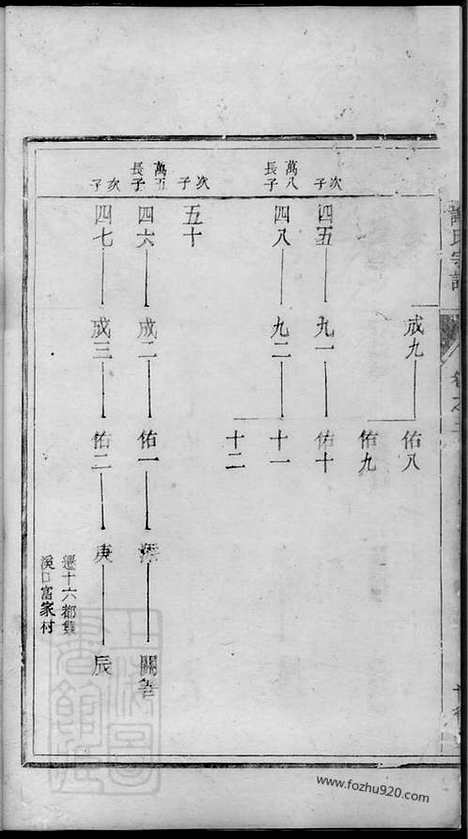 成九 佑八
佑九
次子 四五 九一 佑十
萬八長子 四八 九二 十一
十二
次子 五十
萬五長子 四六 成二 佑一
次子 四七 成三 佑二 庚 辰
遷十六都
溪口富家村
www.fozhu920.com